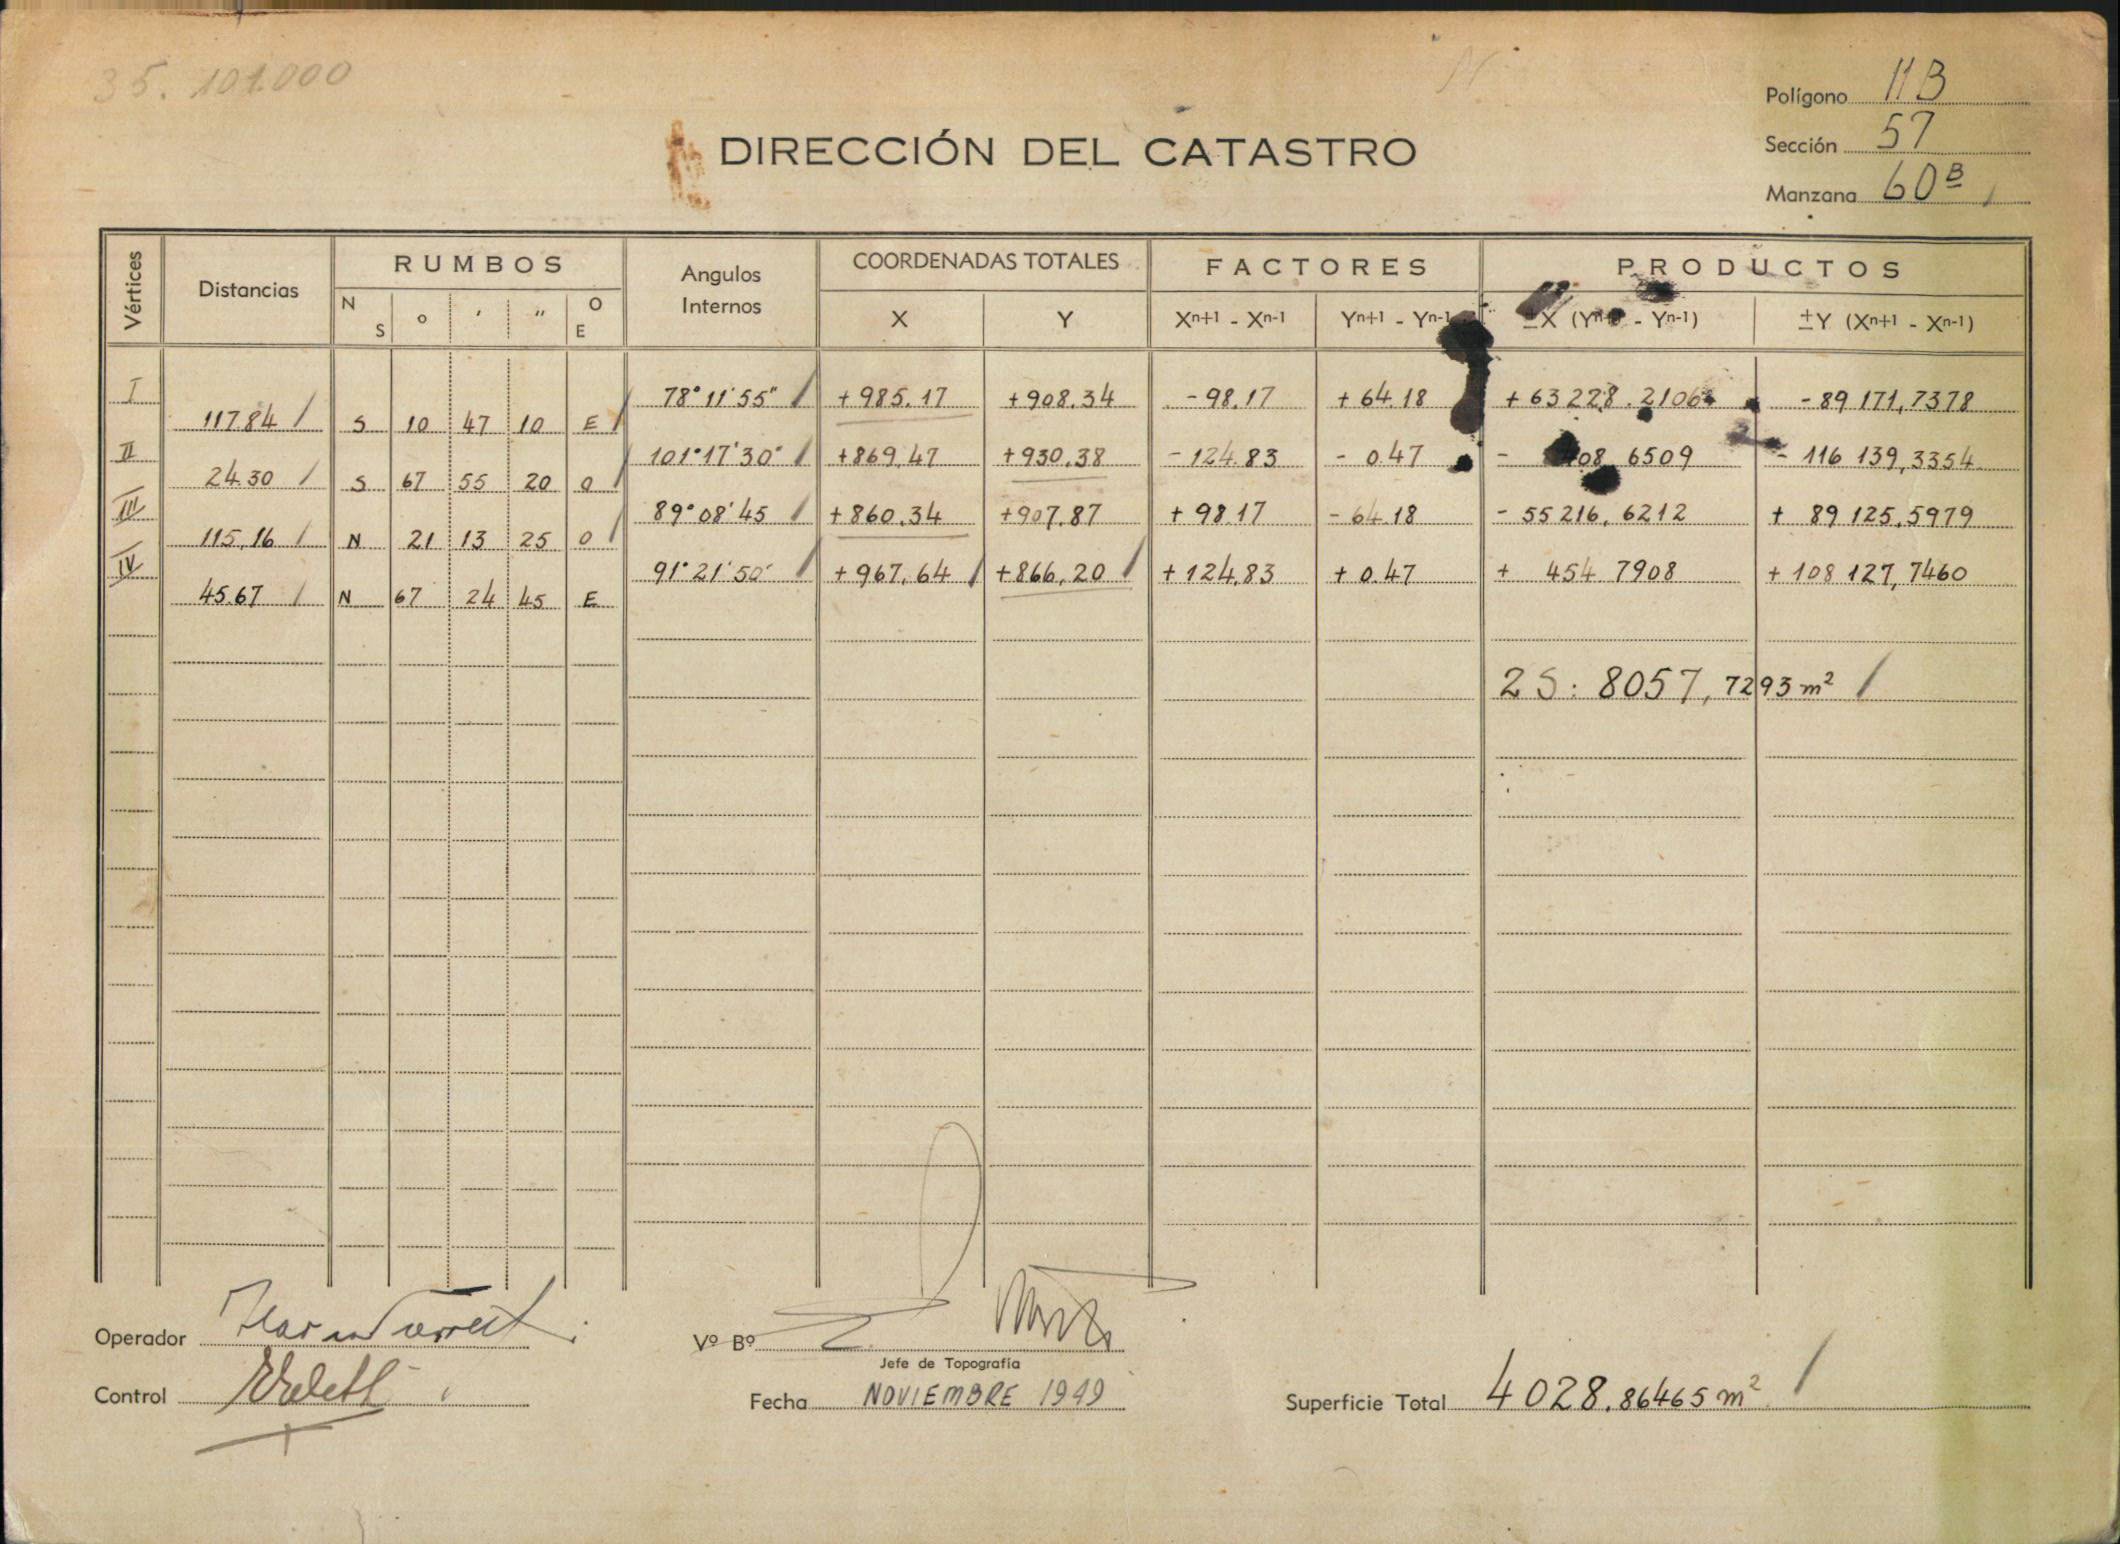 35. 101.000
Polígono 11B
Sección 57
Manzana 60 B
DIRECCIÓN DEL CATASTRO
Vértices Distancias RUMBOS Angulos Internos COORDENADAS TOTALES FACTORES PRODUCTOS
N S o ' " O E X Y Xn+1 - Xn-1 Yn+1 - Yn-1 ±X (Yn+1 - Yn-1) ±Y (Xn+1 - Xn-1)
I 78° 11' 55" +985.17 +908.34 -98.17 +64.18 +63228.2106 -89171,7378
117.84 S 10 47 10 E
II 101° 17' 30" +869.47 +930.38 -124.83 -0.47 - 408 6509 -116 139,3354
24.30 S 67 55 20 O
III 89° 08' 45 +860.34 +907.87 +98.17 -64.18 -55216,6212 +89125.5979
115,16 N 21 13 25 O
IV 91° 21' 50" +967.64 +866,20 +124,83 +0.47 +454 7908 +108 127,7460
45.67 N 67 24 45 E
2S: 8057,7293 m²
Operador
Vº Bº
Jefe de Topografía
Control
Fecha NOVIEMBRE 1949
Superficie Total 4028.86465 m²